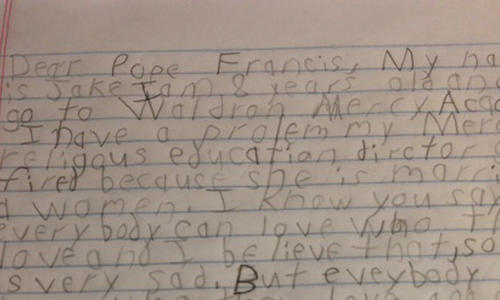 Dear Pope Francis, My na
is Jake I am 8 years old an
go to Waldron Mercy Aca
I have a prolem my Mer
religous education dirctor
fired because she is marri
d women. I know you say
everybody can love who th
love and I be lieve that, so
s very sad. But eveybody